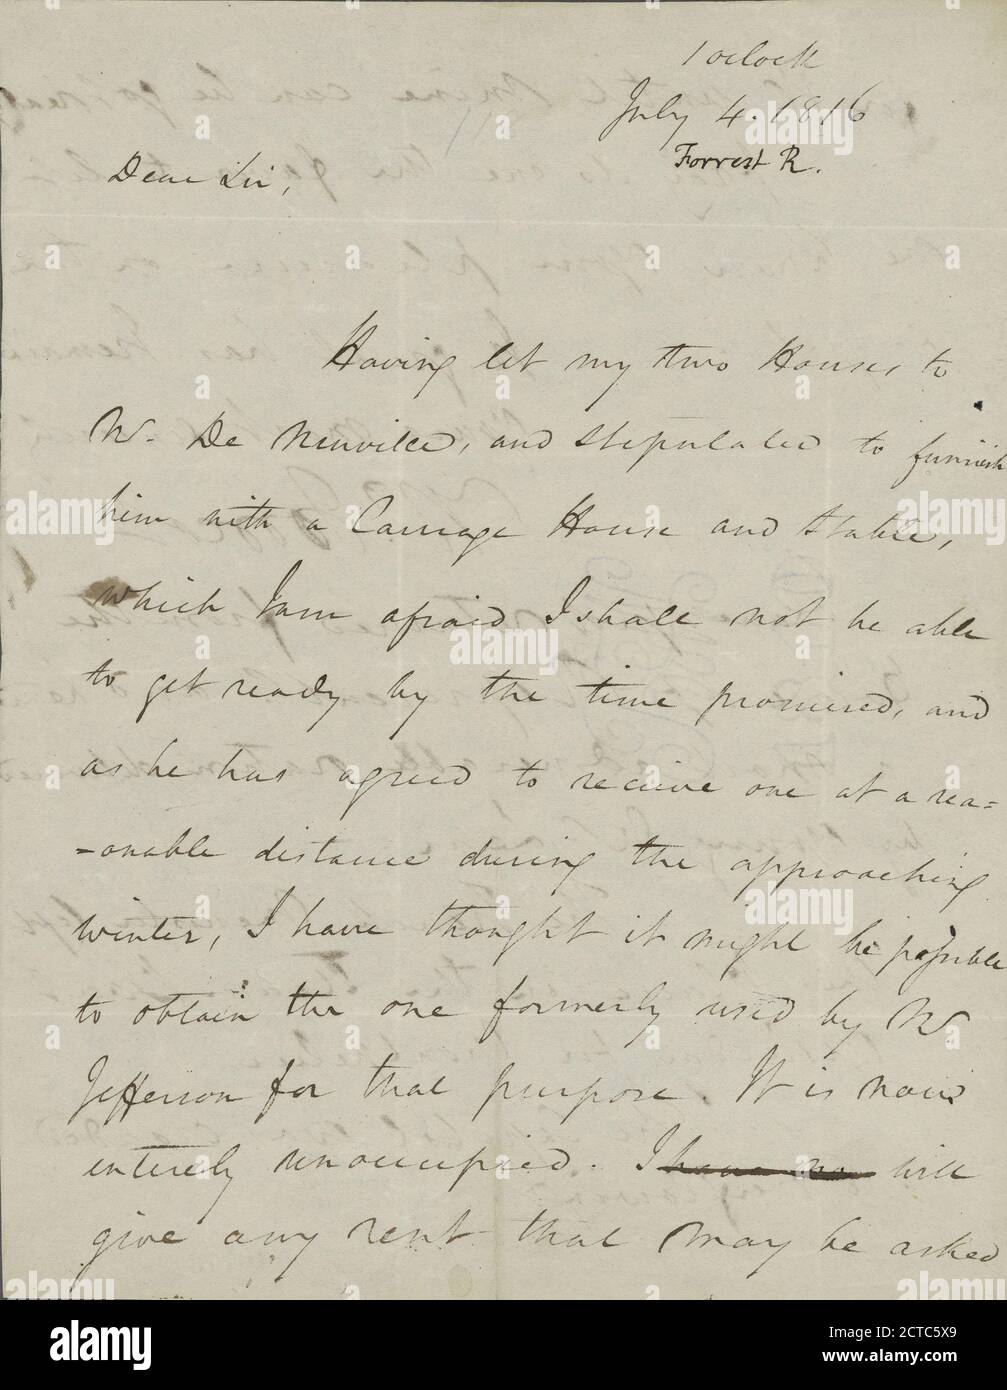 1 oclock
July 4. 1816
Forrest R.
Dear Sir,
Having let my two Houses to
Mr. De Neuville, and stipulated to furnish
him with a Carriage House and Stable,
which I am afraid I shall not be able
to get ready by the time promised, and
as he has agreed to receive one at a rea=
=onable distance during the approaching
winter, I have thought it might be possible
to obtain the one formerly used by Mr
Jefferson for that purpose. It is now
entirely unoccupied. I have no will
give any rent that may be asked
alamy
Image ID: 2CTC5X9
www.alamy.com